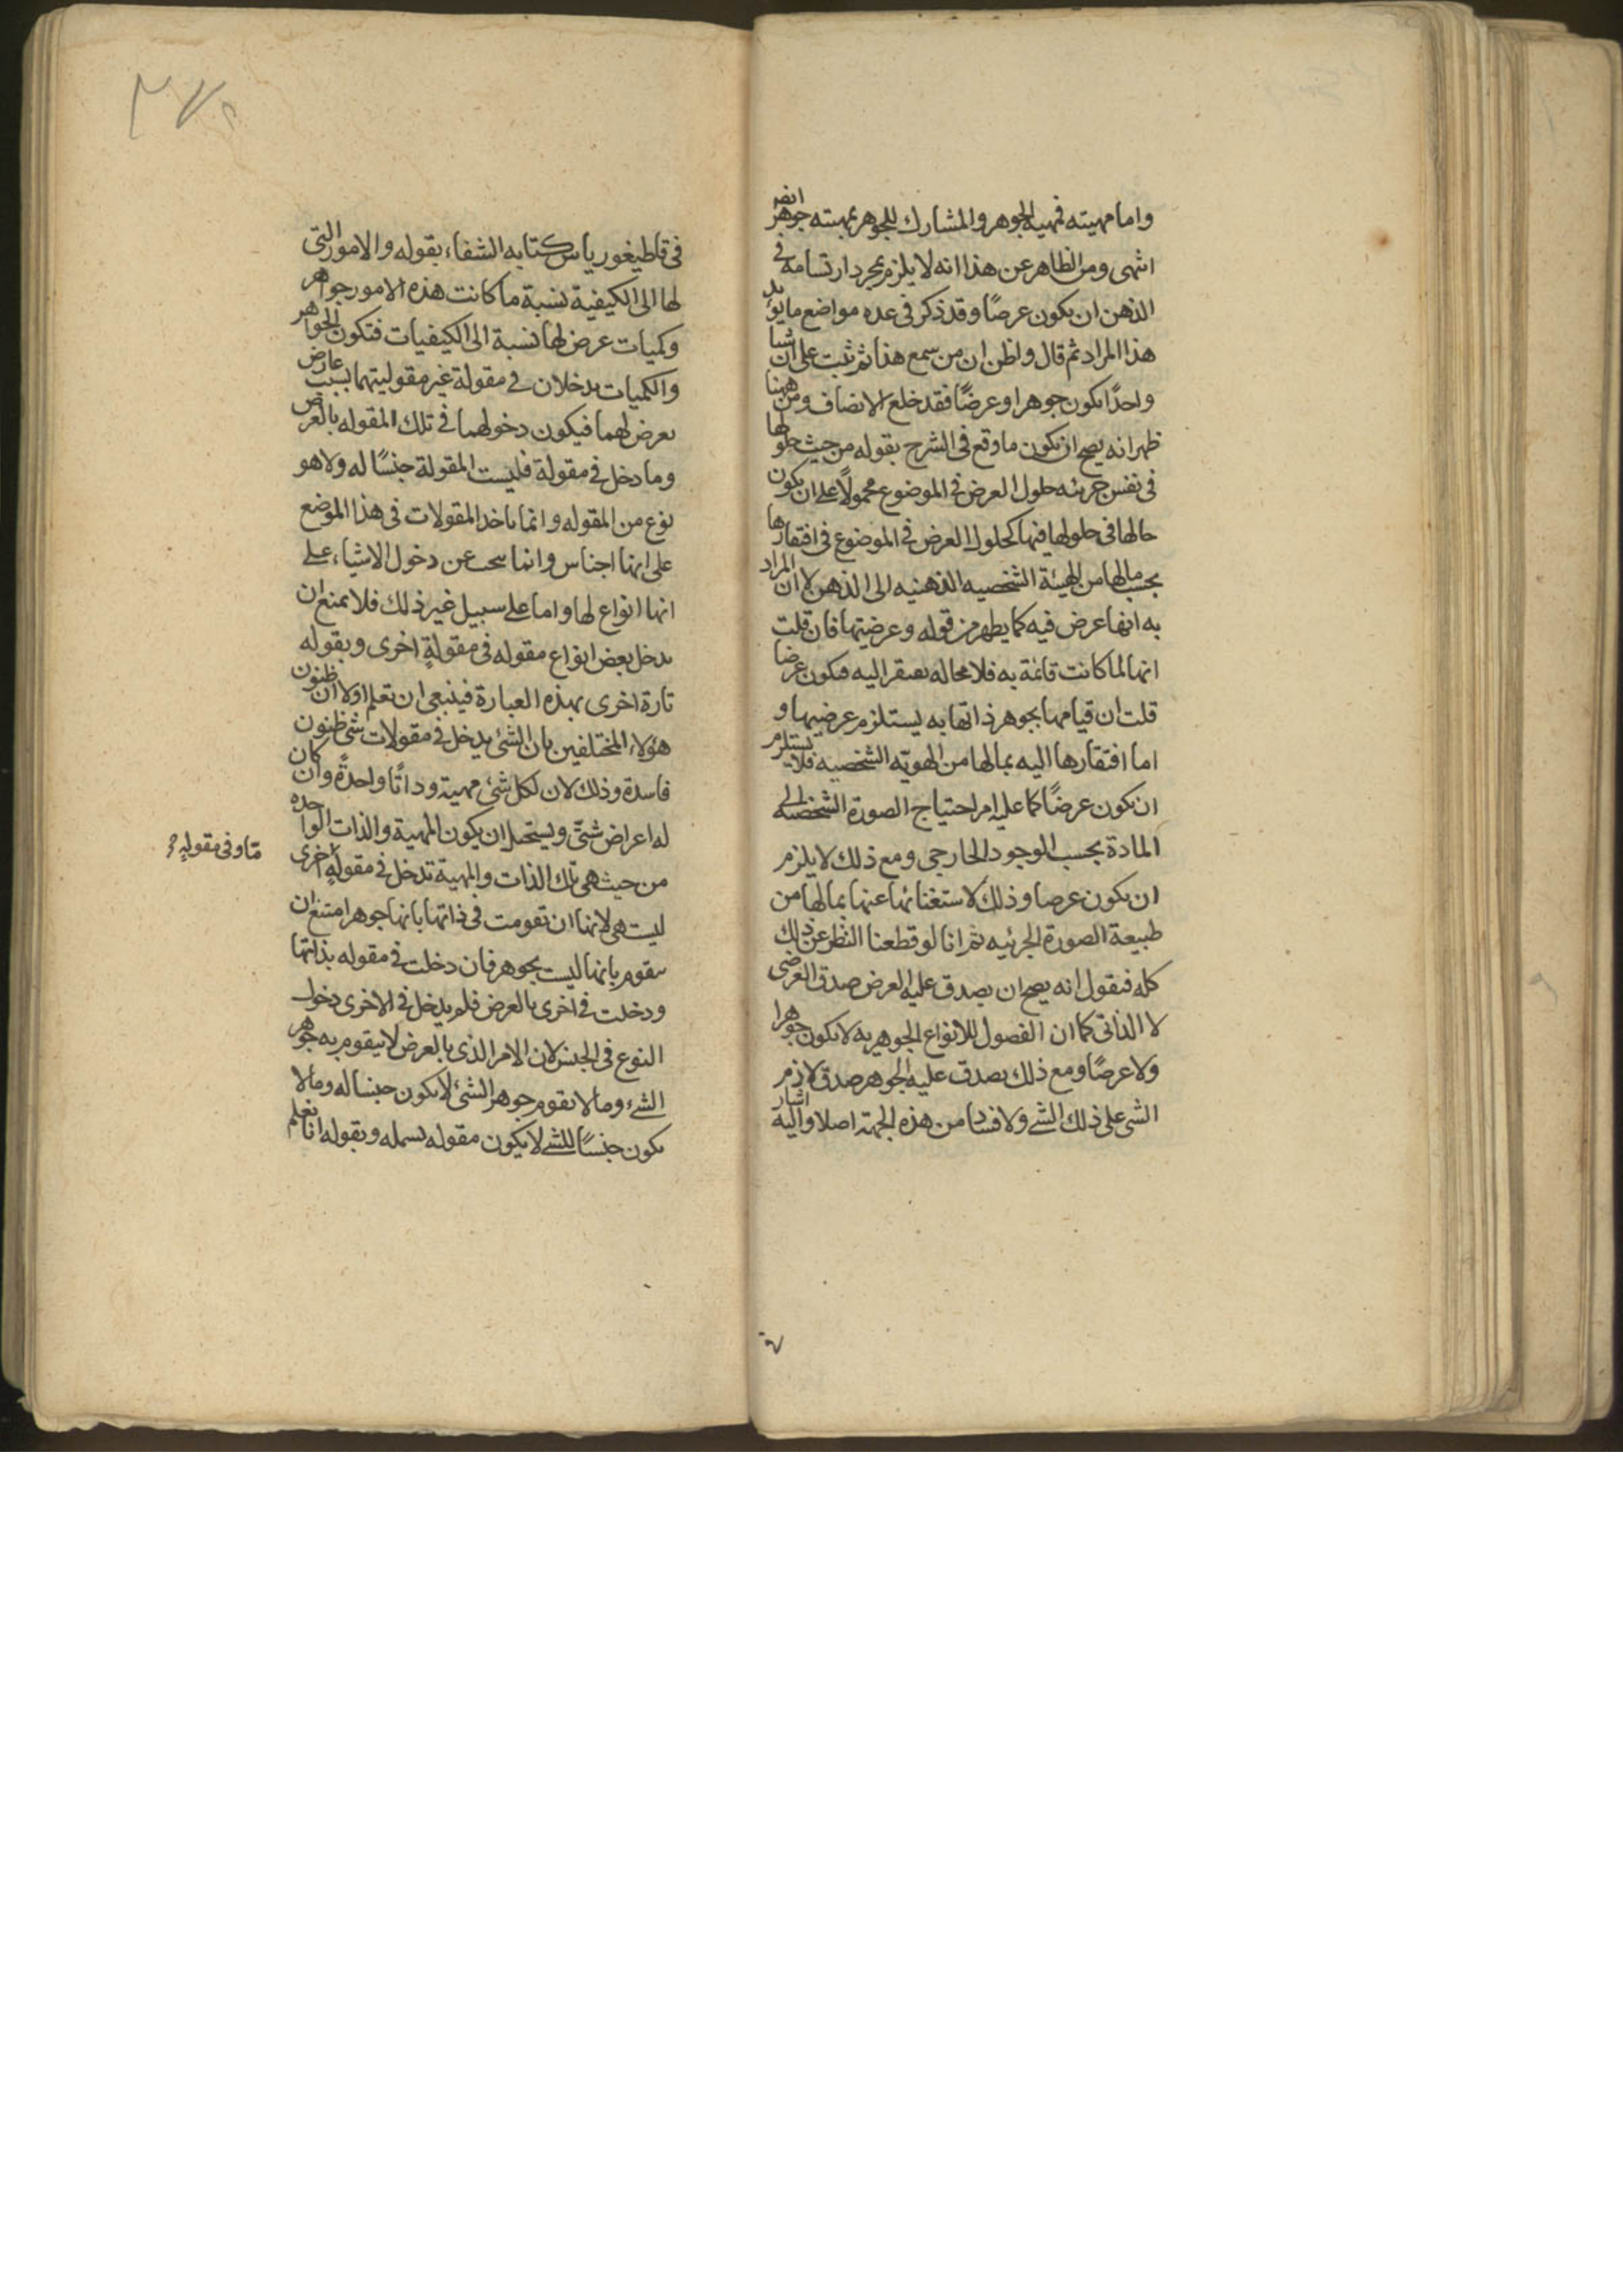 واما مهيته فمهية الجوهر والمشارك للجوهر بمهيته جوهر ايضر
انتهى ومن الظاهر عن هذا انه لا يلزم بمجرد ارتسامه في
الذهن ان يكون عرضًا وقد ذكر فى عده مواضع ما يؤيد
هذا المراد ثم قال واظن ان من سمع هذا ثم ثبت على ان شيا
واحدًا يكون جوهرا وعرضًا فقد خلع الانصاف ومن ههنا
ظهر انه يصح ان يكون ما وقع فى الشرح بقوله من حيث حلولها
فى نفس جزئيه حلول العرض فى الموضوع محمولًا على ان يكون
حالها فى حلولها فيها كحلول العرض فى الموضوع فى افتقارها
بحسب مالها من الهيئة الشخصيه الذهنيه الى الذهن لا ان المراد
به انها عرض فيه كما يظهر من قوله وعرضيتها فان قلت
انها لما كانت قائمة به فلا محاله يفتقر اليه فيكون عرضا
قلت ان قيامها بجوهر ذاتها به يستلزم عرضيتها و
اما افتقارها اليه بمالها من الهويّه الشخصيه فلا يستلزم
ان يكون عرضًا كما عليه امر احتياج الصورة الشخصيه الى
المادة بحسب الوجود الخارجى ومع ذلك لا يلزم
ان يكون عرضا وذلك لاستغنائها عنها بمالها من
طبيعة الصورة الجرئيه ثم انا لو قطعنا النظر عن ذلك
كله فنقول انه يصح ان يصدق عليه العرض صدق العرضى
لا الذاتى كما ان الفصول للانواع الجوهريه لا يكون جوهرا
ولا عرضًا ومع ذلك يصدق عليه الجوهر صدق لازم
الشى على ذلك الشے ولا فساد من هذه الجهة اصلا واليه اشار
فى قاطيغورياس كتابه الشفاء بقوله والامور التى
لها الى الكيفية نسبة ما كانت هذه الامور جواهر
وكميات عرض لها نسبة الى الكيفيات فتكون الجواهر
والكميات يدخلان فى مقولة غير مقوليتهما بسبب عارض
يعرض لهما فيكون دخولهما فى تلك المقوله بالعرض
وما دخل فى مقولة فليست المقولة جنسًا له ولا هو
نوع من المقوله وانما ياخذ المقولات فى هذا الموضع
على انها اجناس وانما يبحث عن دخول الاشياء على
انها انواع لها واما على سبيل غير ذلك فلا يمنع ان
يدخل بعض انواع مقوله فى مقولةٍ اخرى وبقوله
تارة اخرى بهذه العبارة فينبغى ان تعلم اولا ان ظنون
هؤلاء المختلفين بان الشئ يدخل فى مقولات شتى ظنون
فاسدة وذلك لان لكل شئ مهية وذاتًا واحدةً وان كان
له اعراض شتىّ ويستحيل ان يكون المهية والذات الواحده
من حيث هى تلك الذات والمهية تدخل فى مقولةٍ اخرى
ما وفى مقولةٍ
ليست هى لانها ان تقومت فى ذاتها بانها جوهر امتنع ان
يتقوم بانها ليست بجوهر فان دخلت فى مقوله بذاتها
ودخلت فى اخرى بالعرض فلم يدخل فى الاخرى دخول
النوع فى الجنس لان الامر الذى بالعرض لا يتقوم به جوهر
الشئ وما لا يقوم جوهر الشئ لا يكون جنسا له وما لا
يكون جنسًا للشے لا يكون مقوله يشمله وبقوله انا نعلم